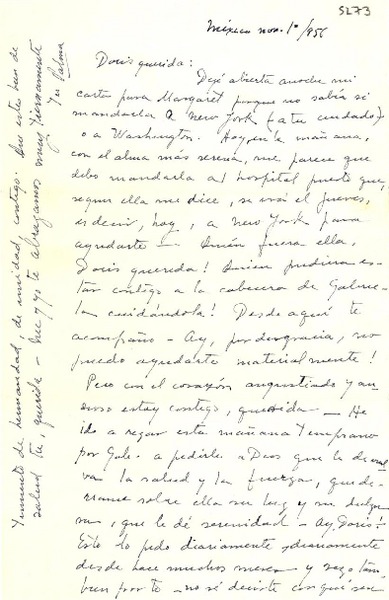 5273
México nov. 1º/956
Doris querida:
Dejé abierta anoche mi
carta para Margaret porque no sabía si
mandarla a New York (a tu cuidado)
o a Washington. Hoy, en la mañana,
con el alma más serena, me parece que
debo mandarla al hospital puesto que,
según ella me dice, se irá el jueves,
es decir, hoy, a New York para
ayudarte — Quién fuera ella,
Doris querida! Quien pudiera es-
tar contigo a la cabecera de Gabrie-
la cuidándola! Desde aquí te
acompaño — Ay, por desgracia, no
puedo ayudarte materialmente!
Pero con el corazón angustiado y an-
sioso estoy contigo, querida — He
ido a rogar esta mañana temprano
por Gab. a pedirle a Dios que le devuel
va la salud y la fuerza, que de-
rrame sobre ella su luz y su dulzu
ra, que le dé serenidad — Ay Doris!
Esto lo pido diariamente, diariamente
desde hace muchos meses — y ruego tam-
bien por ti — no sé decirte con qué sen-
timiento de hermandad, de unidad contigo. Que estés bien de
salud tú, querida — y yo te abrazamos muy tiernamente
Tu Palma